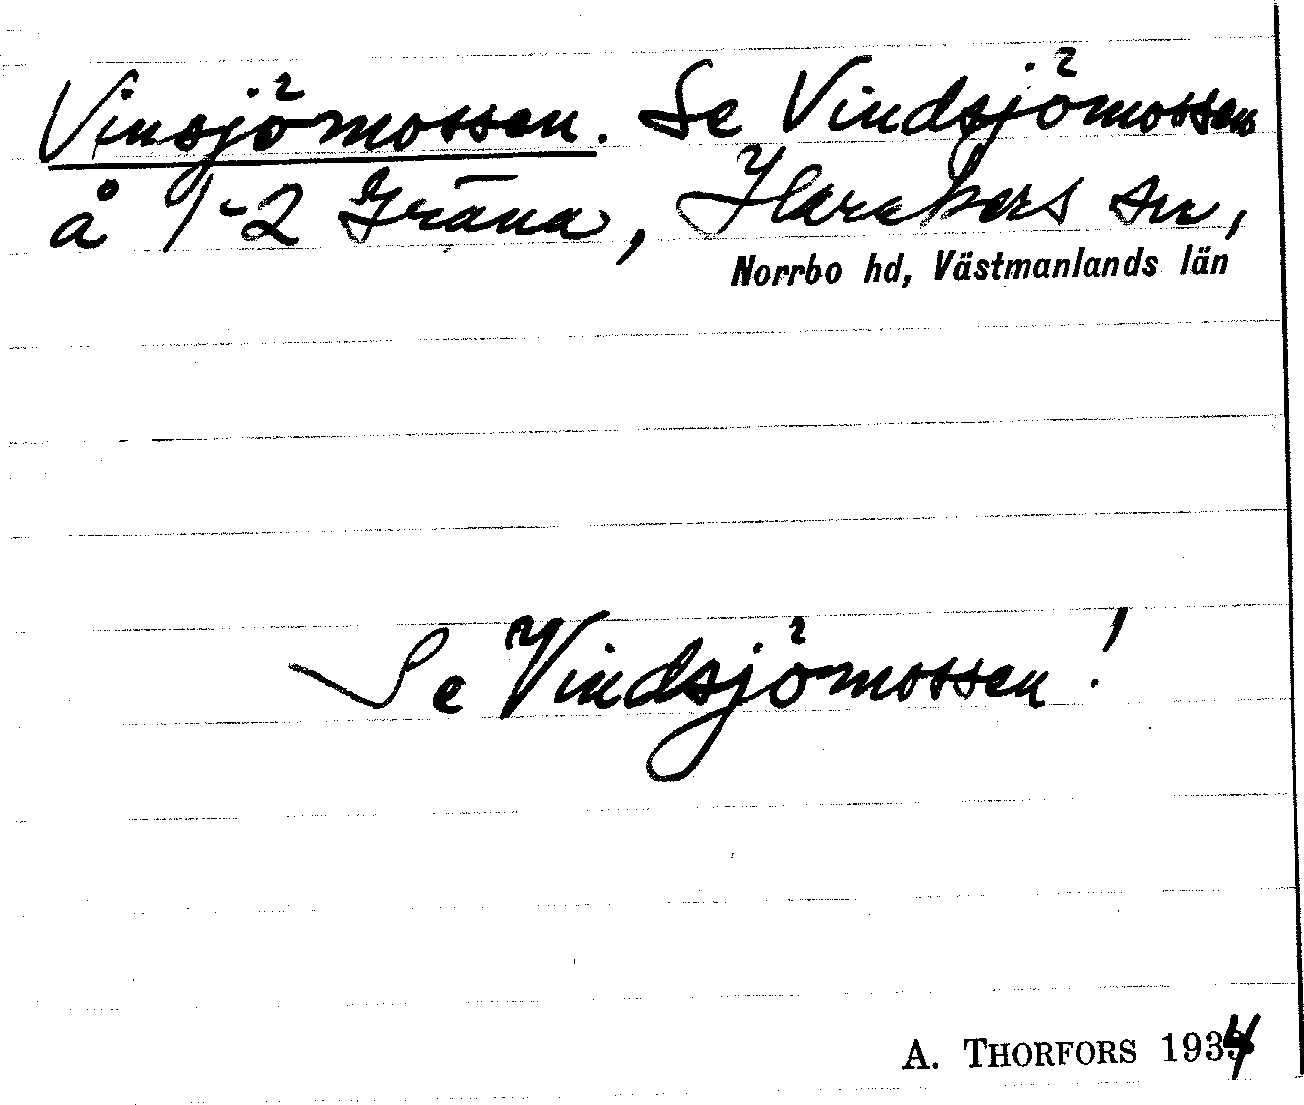 Vinsjömossen. Se Vindsjömossen
å 1-2 Gräna, Harakers sn,
Norrbo hd, Västmanlands län
Se Vindsjömossen!
A. THORFORS 1934